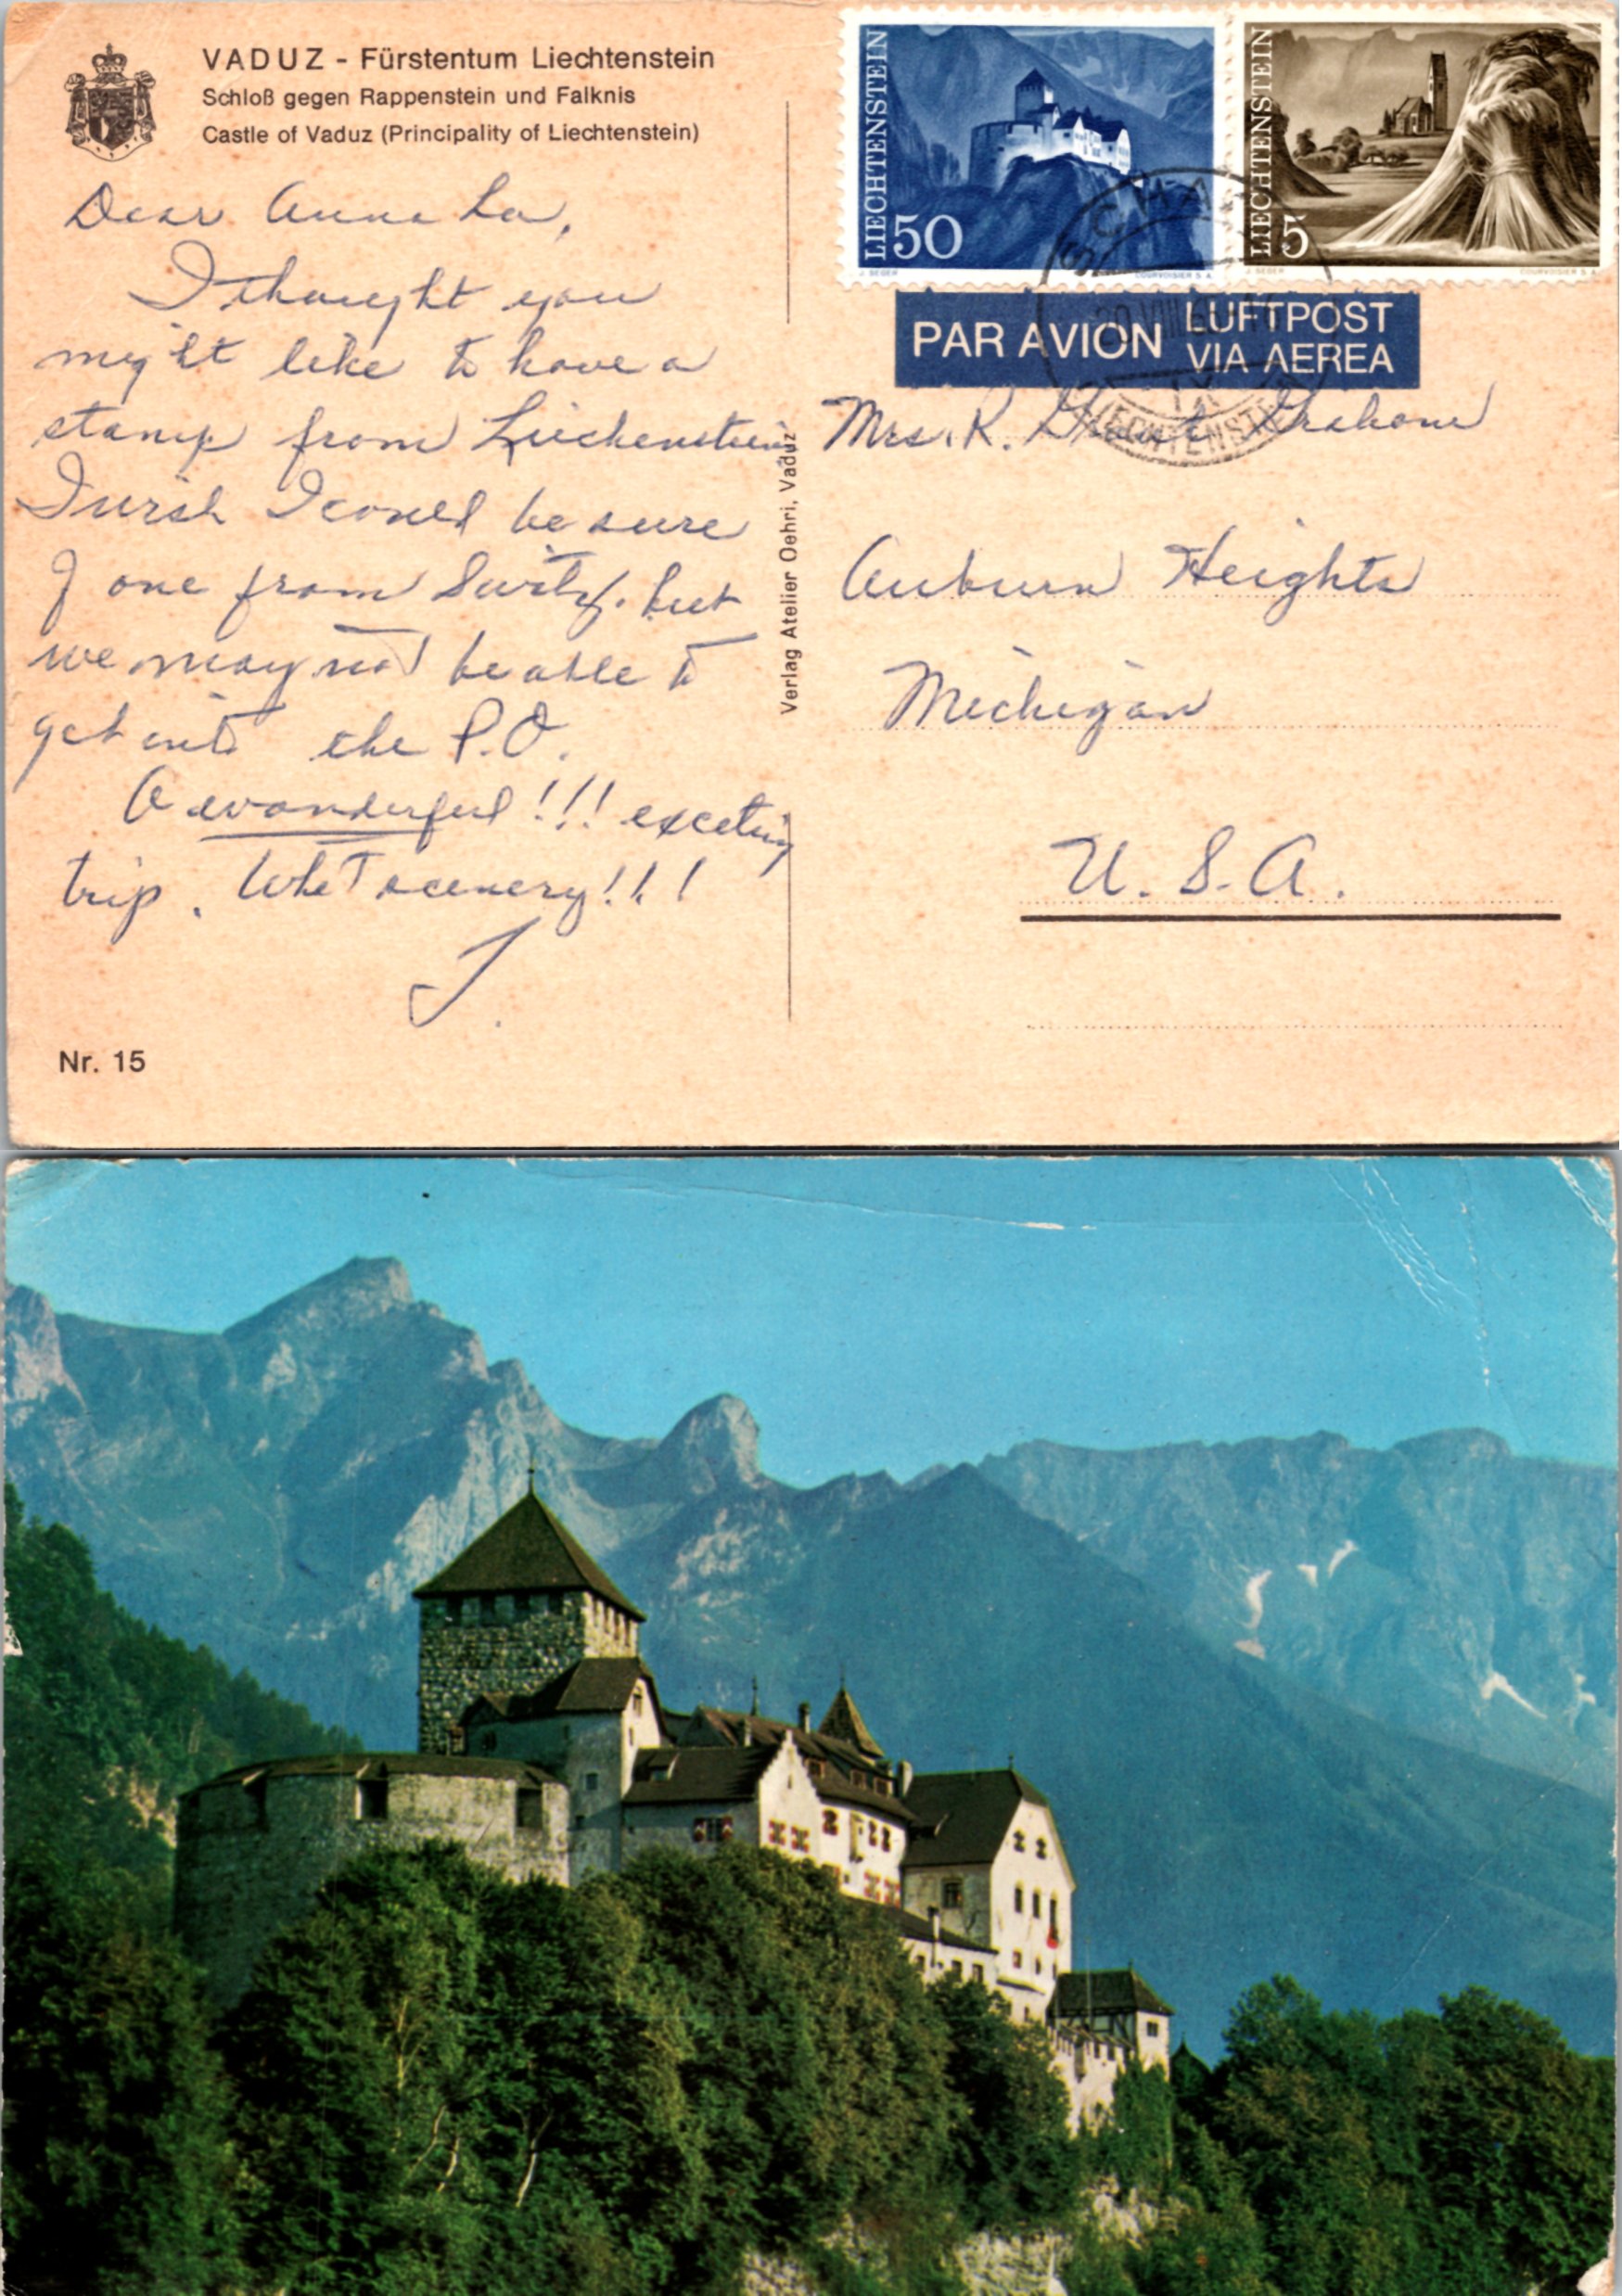 VADUZ - Fürstentum Liechtenstein
Schloß gegen Rappenstein und Falknis
Castle of Vaduz (Principality of Liechtenstein)
Dear Anna La,
I thought you
might like to have a
stamp from Liechenstein
I wish I could be sure
of one from Switz. but
we may not be able to
get into the P.O.
A wonderful!!! exceting
trip. What scenery!!!
J.
Nr. 15
Verlag Atelier Oehri, Vaduz
LIECHTENSTEIN
50
J. SEGER
COURVOISIER S.A.
LIECHTENSTEIN
5
J. SEGER
COURVOISIER S.A.
SCHAAN
LIECHTENSTEIN
PAR AVION LUFTPOST
VIA AEREA
Mrs. R. Grahame
Auburn Heights
Michigan
U.S.A.